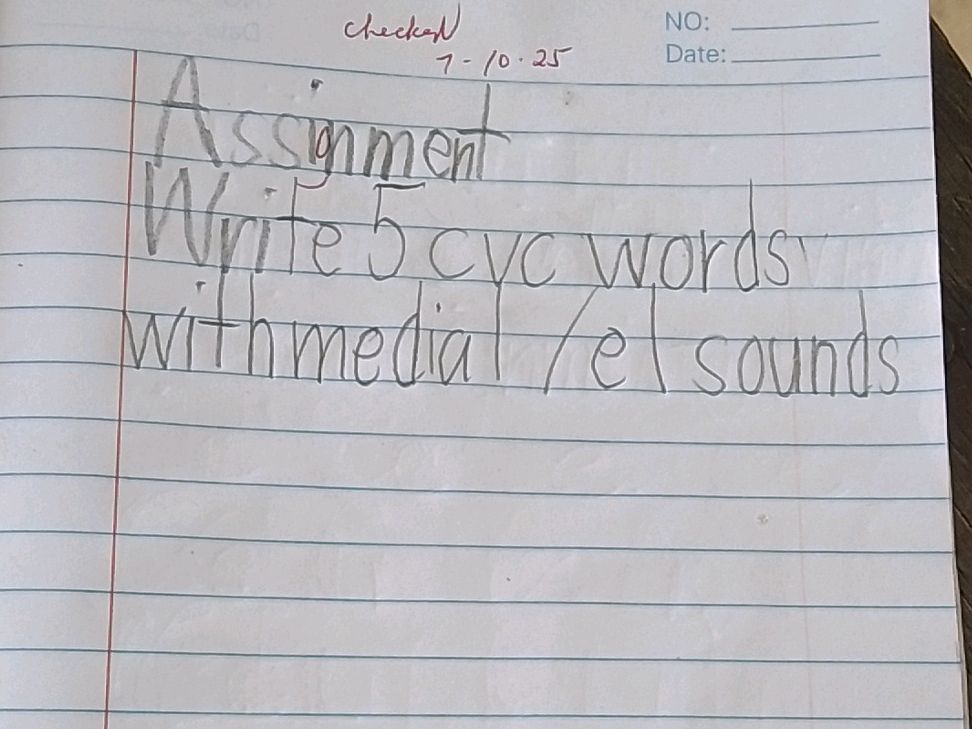 checked
7-10.25
NO:
Date:
Assignment
Write 5 cvc words
with medial /e/ sounds